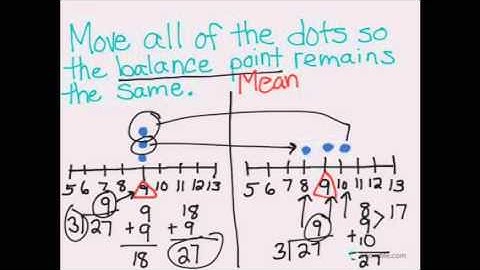 Move all of the dots so
the balance point remains
the same. Mean
5 6 7 8 9 10 11 12 13
9
3)27
9
+9
18
18
+9
27
5 6 7 8 9 10 11 12 13
9
3)27
8 > 17
9
+10
27